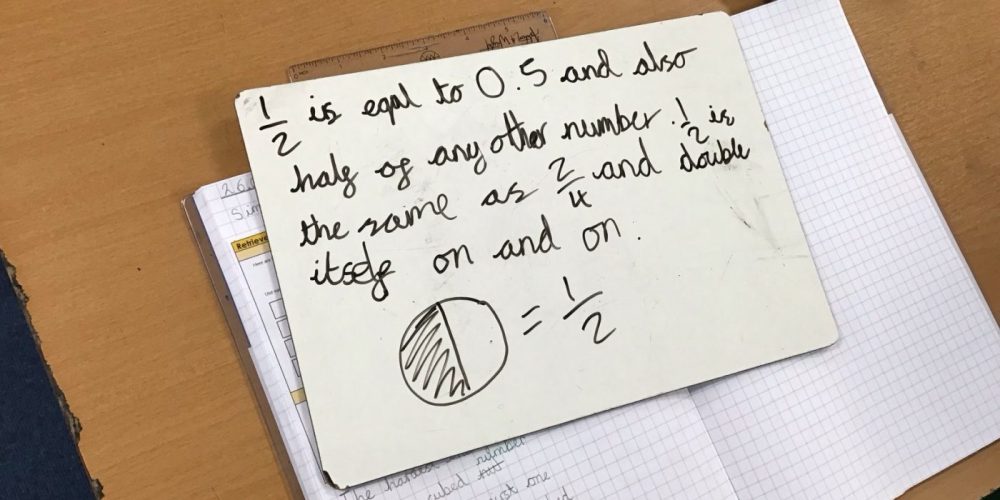 1/2 is eqal to 0.5 and also
half of any other number. 1/2 is
the same as 2/4 and double
itself on and on.
= 1/2
Retrieve
The hardest number
cubed
just one